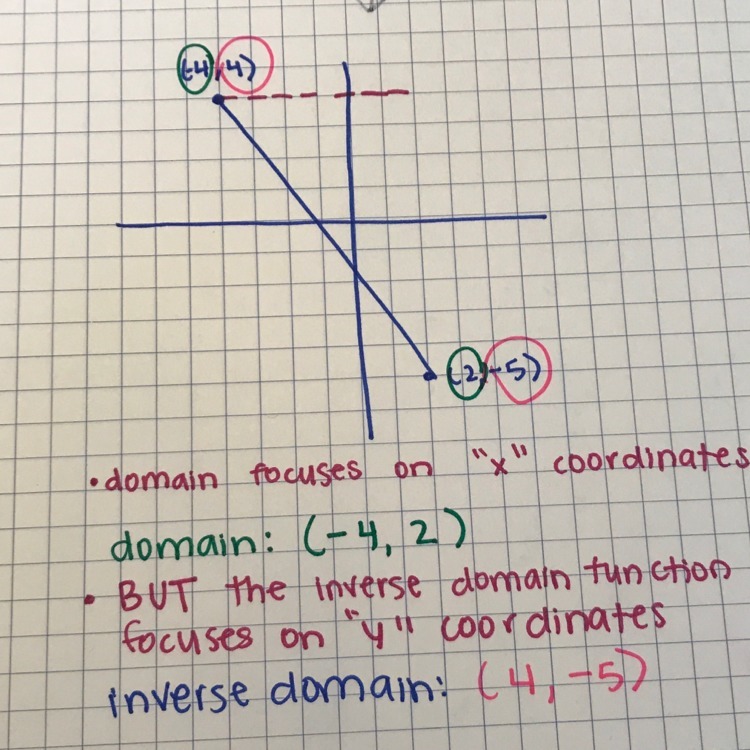 (-4, 4)
(2, -5)
• domain focuses on "x" coordinates
domain: (-4, 2)
• BUT the inverse domain function
focuses on "y" coordinates
inverse domain: (4, -5)